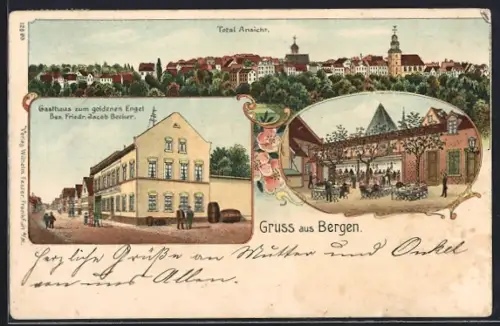 12989
Total Ansicht.
Gasthaus zum goldenen Engel
Bes. Friedr. Jacob Becker.
Verlag Wilhelm Frankfurt a/M.
Gruss aus Bergen.
Herzliche Grüße an Mutter und Onkel
von uns Allen.